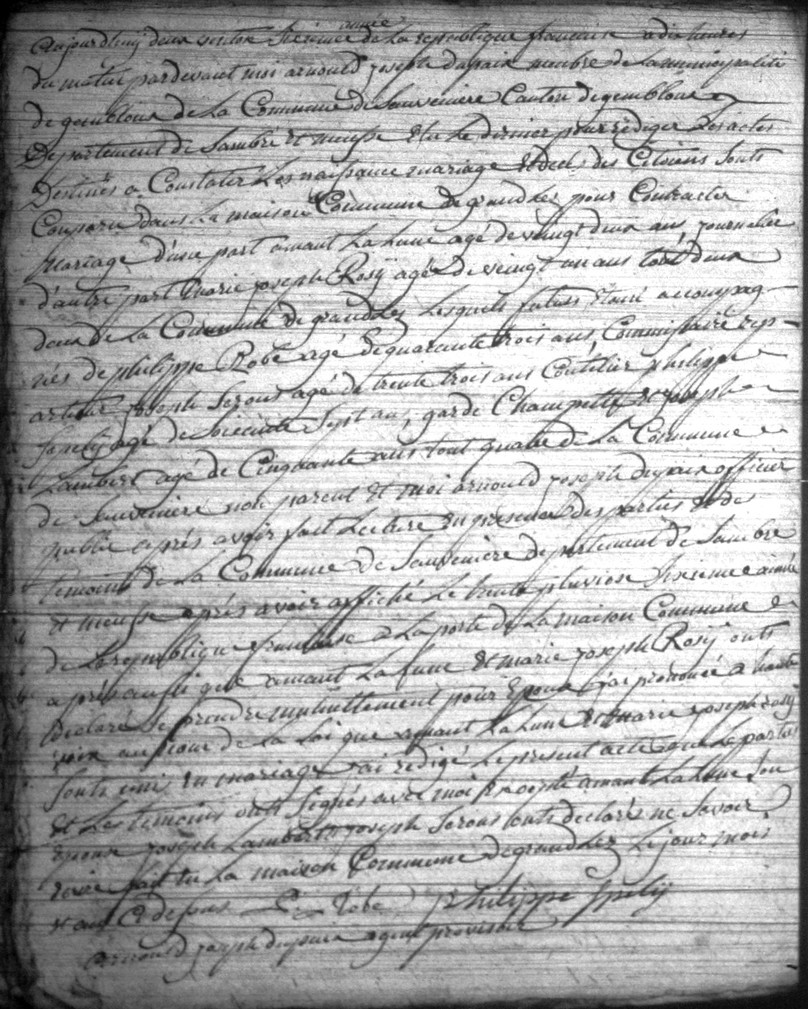 aujourdhuij deux ventos sixieme année de la republique francaise a dix heures
du matin pardevant moi arnould joseph dupaix membre de la municipalité
de gembloux de la Commune de Sauveniere Canton de gembloux
Departement de Sambre et meuse Elu le dernier pour rediger les actes
Destinés a Constater les naissance mariage et deces des Citoiens sonts
Comparu dans la maison Commune de grandlez pour Contracter
mariage d'une part amant La Lune agé de veingt deux ans journalier
d'autre part Marie joseph Rosij agée de veingt un ans tout deux
deux de la Commune de grandlez lesquels futurs étant accompag-
nés de philippe Robe agé de quarante trois ans Commissaire rep-
joseph Serous agé de trente trois ans Coutelier philippe
agé de soixante sept ans garde Champetre et joseph
Lambert agé de Cinquante ans tout quatre de la Commune
de Sauveniere non parent et moi arnould joseph dupaix officier
public après avoir fait Lecture en presence des parties et de
temoins de la Commune de Sauveniere departement de Sambre
et meuse après avoir affiché le trente pluviose sixieme année
de la republique francaise a la porte de la maison Commune
après aussi que amant La Lune et marie joseph Rosij onts
declaré se prendre mutuellement pour Epoux j'ai prononcé a haute
voix au nom de la Loi que amant La Lune et marie joseph rosij
sonts unis en mariage j'ai redigé le present acte que les parties
et les temoins onts signés avec moi Excepté amant La Lune son
epouse joseph Lambert joseph Serous onts declarés ne savoir
ecrire fait en la maison Commune de grandlez le jour mois
et an Ci dessus Robe Philippe
arnould joseph dupaix agent provisoir